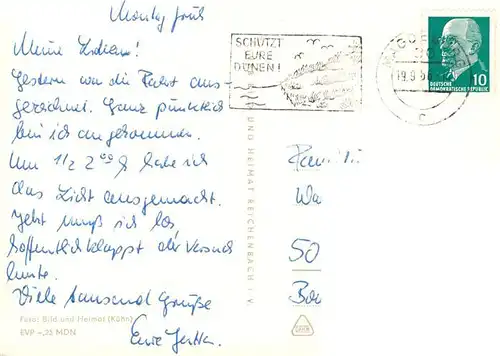 Montag früh
Meine Lieben!
Gestern war die Fahrt aus-
gezeichnet. Ganz pünktlich
bin ich angekommen.
Um 1/2 2 00 h habe ich
das Licht ausgemacht.
Jetzt muß ich los,
hoffentlich klappt der Versuch
heute.
Viele tausend Grüße
Eure
Foto: Bild und Heimat (Kühn)
EVP –,22 MDN
UND HEIMAT REICHENBACH I. V.
SCHÜTZT
EURE
DÜNEN!
19.9.
c
10
DEUTSCHE
DEMOKRATISCHE REPUBLIK
50